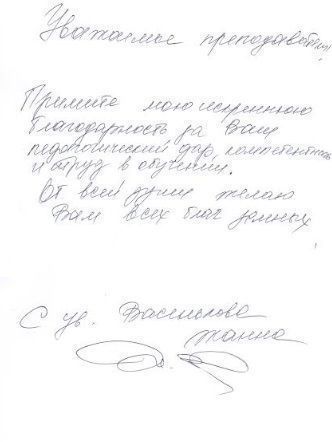 Уважаемые преподаватели!
Примите мою искреннюю
благодарность за Ваш
педагогический дар, компетентность
и труд в обучении.
От всей души желаю
Вам всех благ земных
С ув. Васильева
Жанна